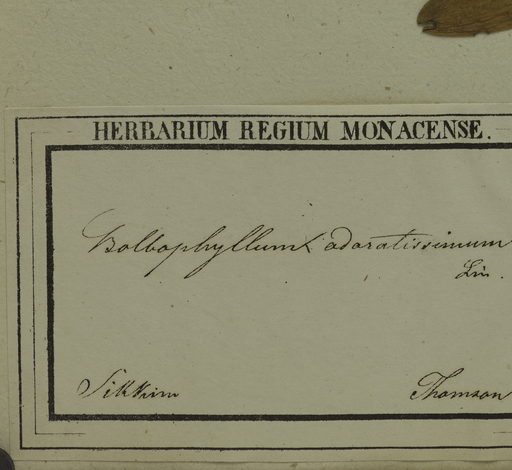 HERBARIUM REGIUM MONACENSE.
Bolbophyllum adoratissimum
Lin.
Sikkim
Thomson